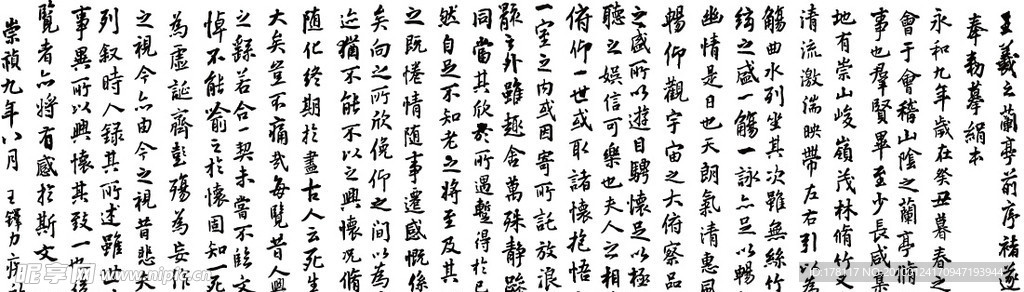 王羲之蘭亭前序褚遂
奉勅摹絹本
永和九年歲在癸丑暮春之
會于會稽山陰之蘭亭脩
事也羣賢畢至少長咸集
地有崇山峻嶺茂林脩竹又
清流激湍映帶左右引以為
觴曲水列坐其次雖無絲竹
絃之盛一觴一詠亦足以暢
幽情是日也天朗氣清惠風
暢仰觀宇宙之大俯察品
之盛所以遊目騁懷足以極
聽之娛信可樂也夫人之相
俯仰一世或取諸懷抱悟
一室之內或因寄所託放浪
骸之外雖趣舍萬殊静躁
同當其欣於所遇蹔得於已
然自足不知老之將至及其
之既惓情隨事遷感慨係
矣向之所欣俛仰之間以為
迹猶不能不以之興懷況脩
隨化終期於盡古人云死生
大矣豈不痛哉每覽昔人興
之繇若合一契未嘗不臨文
悼不能喻之於懷固知一死
為虛誕齊彭殤為妄作
之視今亦由今之視昔悲夫
列叙時人錄其所述雖世
事異所以興懷其致一也後
覽者亦將有感於斯文
崇禎九年八月 王鐸力疾
昵享网 www.nipic.cn
ID:178117 NO:20120124170947193944